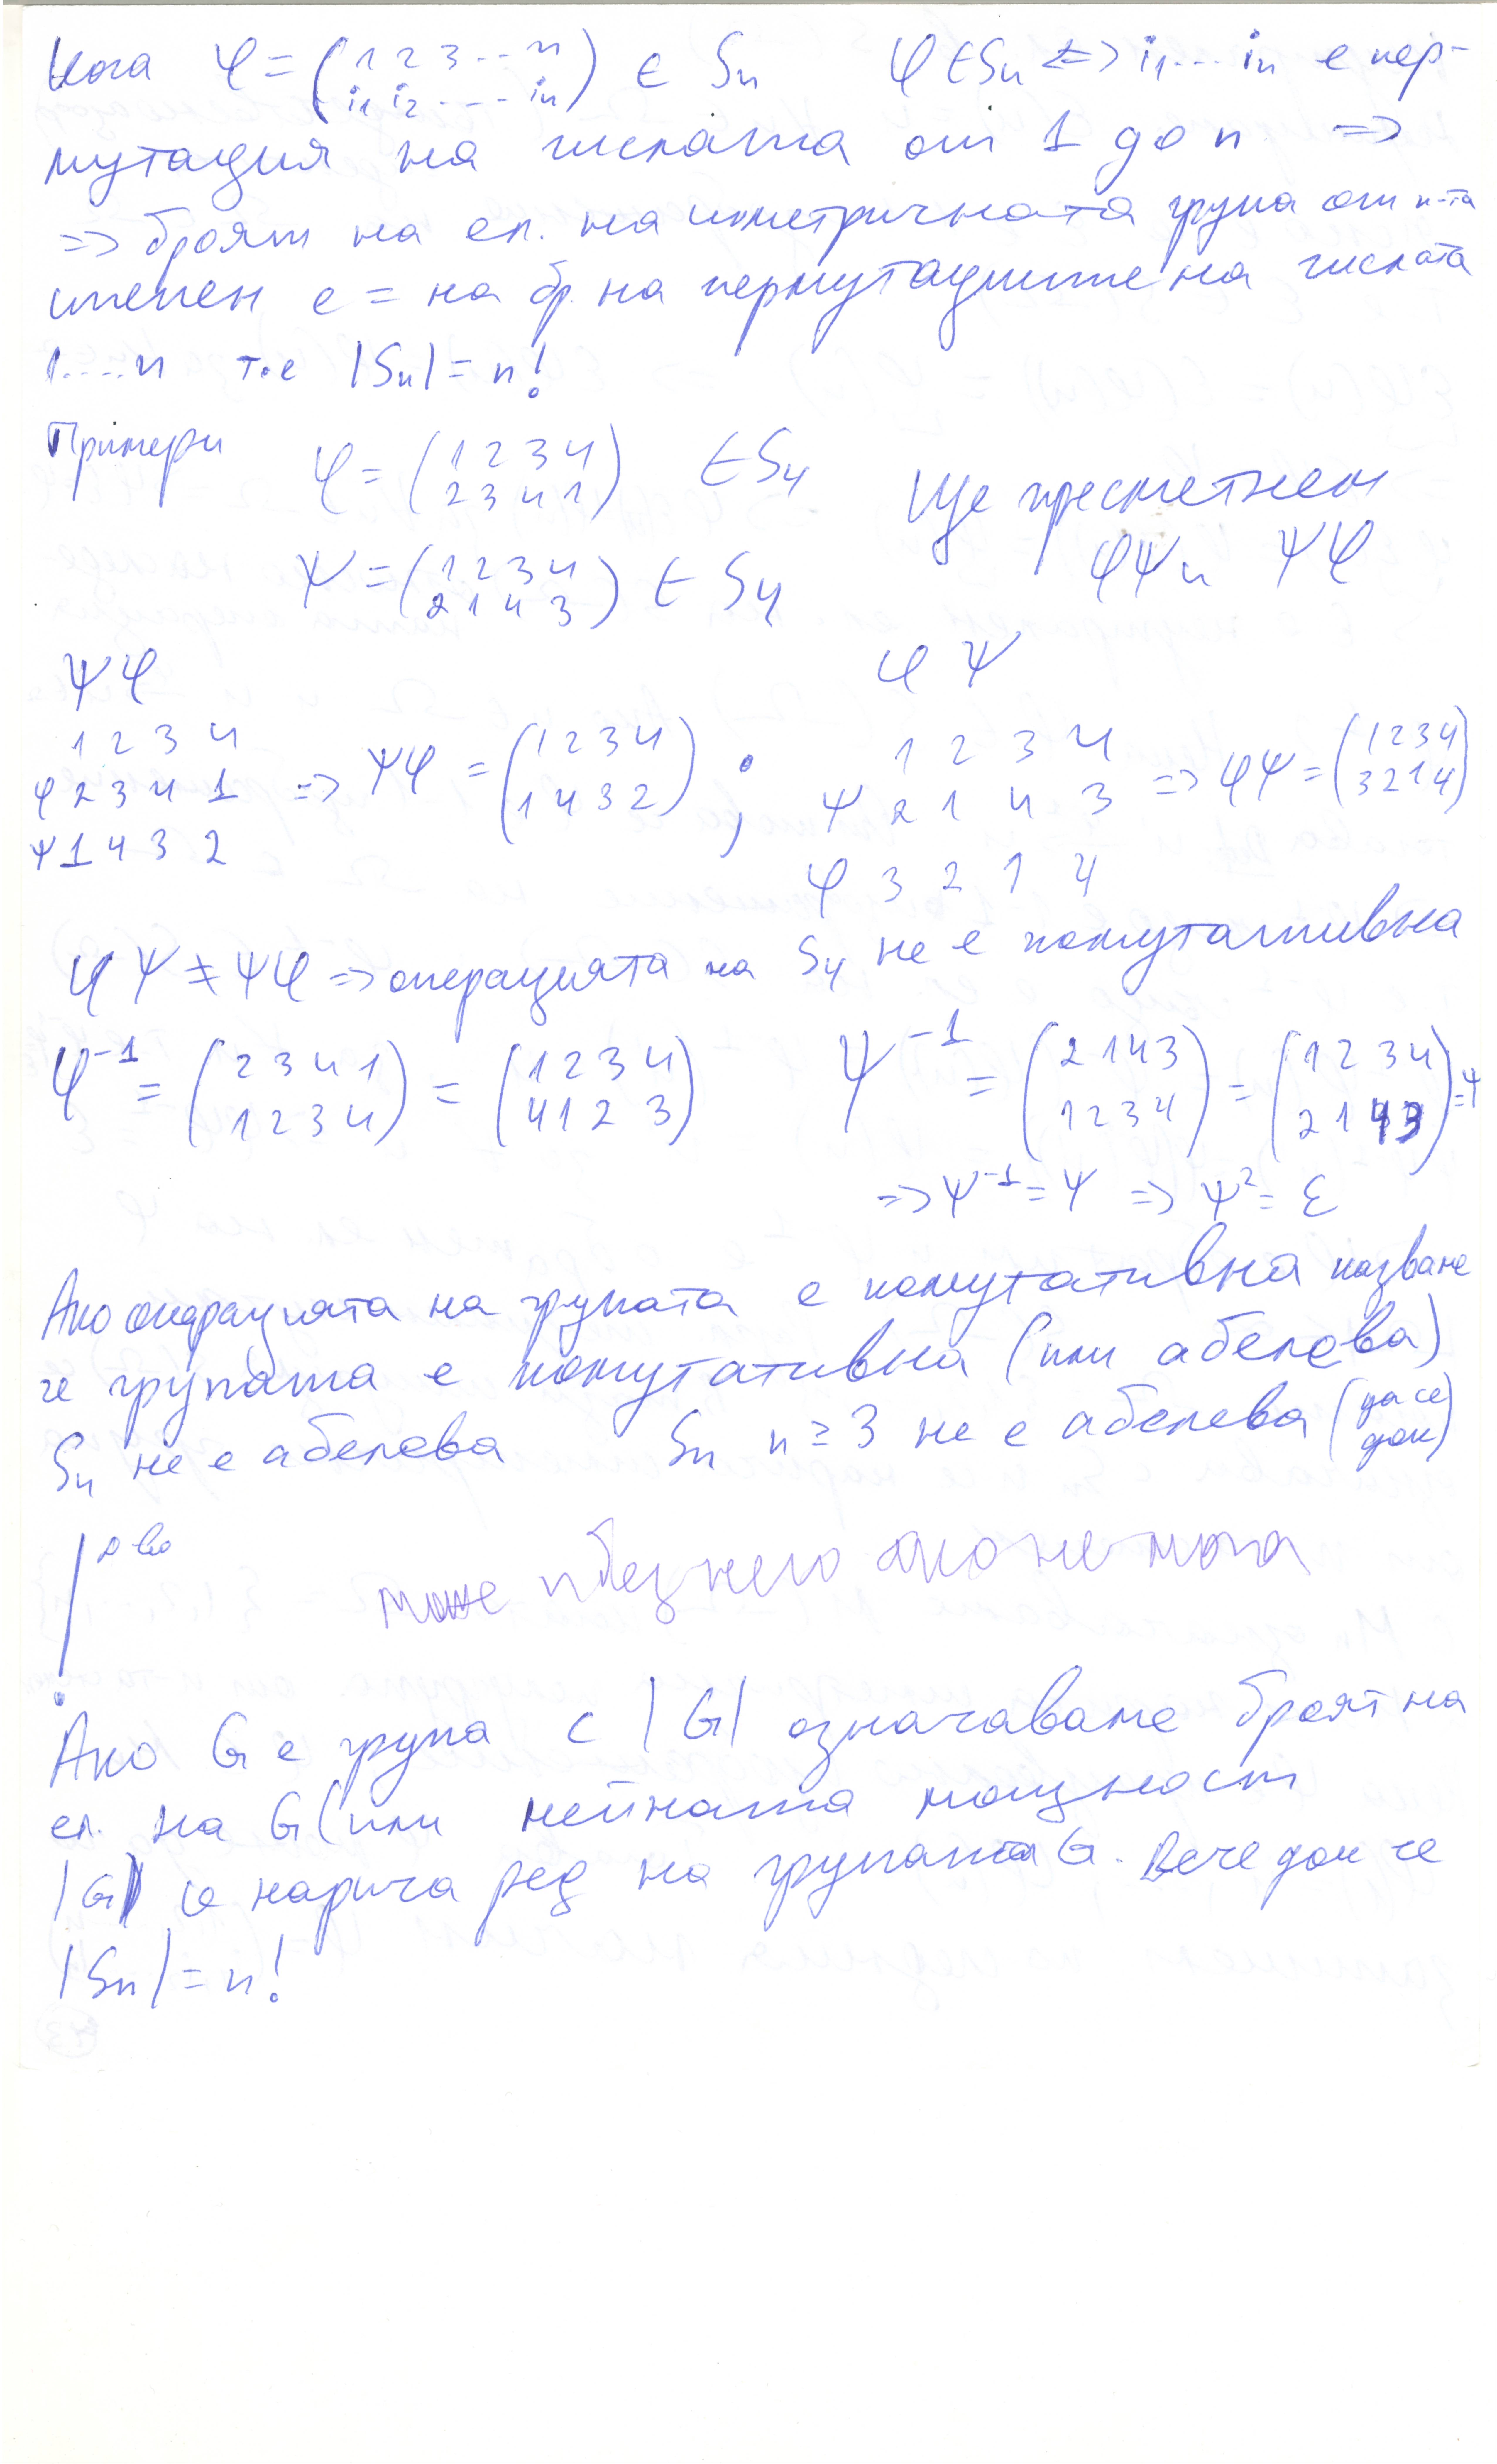 Кога φ = (1 2 3 ... n / i1 i2 .... in) ∈ Sn φ ∈ Sn <=> i1...in е пер-
мутация на числата от 1 до n =>
=> броят на ел. на симетричната група от n-та
степен е = на бр. на пермутациите на числата
1....n т.е |Sn| = n!
Примери φ = (1 2 3 4 / 2 3 4 1) ∈ S4 Ще пресметнем
ψ = (1 2 3 4 / 2 1 4 3) ∈ S4 φψ и ψφ
ψφ φψ
1 2 3 4 1 2 3 4
φ 2 3 4 1 => ψφ = (1 2 3 4 / 1 4 3 2) ; ψ 2 1 4 3 => φψ = (1 2 3 4 / 3 2 1 4)
ψ 1 4 3 2 φ 3 2 1 4
φψ ≠ ψφ => операцията на S4 не е комутативна
φ⁻¹ = (2 3 4 1 / 1 2 3 4) = (1 2 3 4 / 4 1 2 3) ψ⁻¹ = (2 1 4 3 / 1 2 3 4) = (1 2 3 4 / 2 1 4 3) = ψ
=> ψ⁻¹ = ψ => ψ² = ε
Ако операцията на групата е комутативна казваме
че групата е комутативна (или абелева)
S4 не е абелева Sn n ≥ 3 не е абелева (да се док)
д-во
може и без него ако не мога
Ако G е група с |G| означаваме броят на
ел. на G (или нейната мощност
|G| се нарича ред на групата G. Вече док че
|Sn| = n!